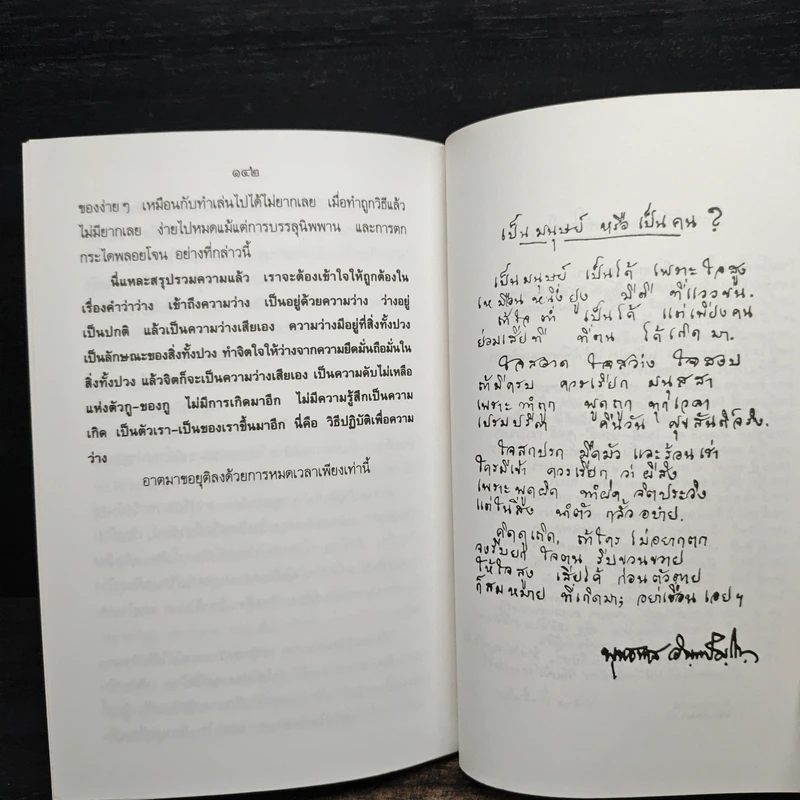 ๑๔๒
ของง่ายๆ เหมือนกับทำเล่นไปได้ไม่ยากเลย เมื่อทำถูกวิธีแล้ว
ไม่มียากเลย ง่ายไปหมดแม้แต่การบรรลุนิพพาน และการตก
กระไดพลอยโจน อย่างที่กล่าวนี้
นี่แหละสรุปรวมความแล้ว เราจะต้องเข้าใจให้ถูกต้องใน
เรื่องคำว่าว่าง เข้าถึงความว่าง เป็นอยู่ด้วยความว่าง ว่างอยู่
เป็นปกติ แล้วเป็นความว่างเสียเอง ความว่างมีอยู่ที่สิ่งทั้งปวง
เป็นลักษณะของสิ่งทั้งปวง ทำจิตใจให้ว่างจากความยึดมั่นถือมั่นใน
สิ่งทั้งปวง แล้วจิตก็จะเป็นความว่างเสียเอง เป็นความดับไม่เหลือ
แห่งตัวกู-ของกู ไม่มีการเกิดมาอีก ไม่มีความรู้สึกเป็นความ
เกิด เป็นตัวเรา-เป็นของเราขึ้นมาอีก นี่คือ วิธีปฏิบัติเพื่อความ
ว่าง
อาตมาขอยุติลงด้วยการหมดเวลาเพียงเท่านี้
เป็นมนุษย์ หรือ เป็นคน ?
เป็นมนุษย์ เป็นได้ เพราะใจสูง
เหมือนหนึ่งยูง มีดี ที่แววขน.
ถ้าใจต่ำ เป็นได้ แต่เพียงคน
ย่อมเสียที ที่ตน ได้เกิดมา.
ใจสอาด ใจสว่าง ใจสงบ
ถ้ามีครบ ควรเรียก มนุสสา
เพราะทำถูก พูดถูก ทุกเวลา
เปรมปรีดา คืนวัน ศุขสันติ์จริง.
ใจสกปรก มืดมัว และร้อนเร่า
ใครมีเข้า ควรเรียก ว่าผีสิง
เพราะพูดผิด ทำผิด จิตประวิง
แต่ในสิ่ง นำตัว กลั้วอบาย.
คิดดูเถิด, ถ้าใคร ไม่อยากตก
จงรีบยก ใจตน รีบขวนขวาย
ให้ใจสูง เสียได้ ก่อนตัวตาย
ก็สมหมาย ที่เกิดมา; อย่าเชือนเอยฯ
พุทธทาส อินฺทปญฺโญ